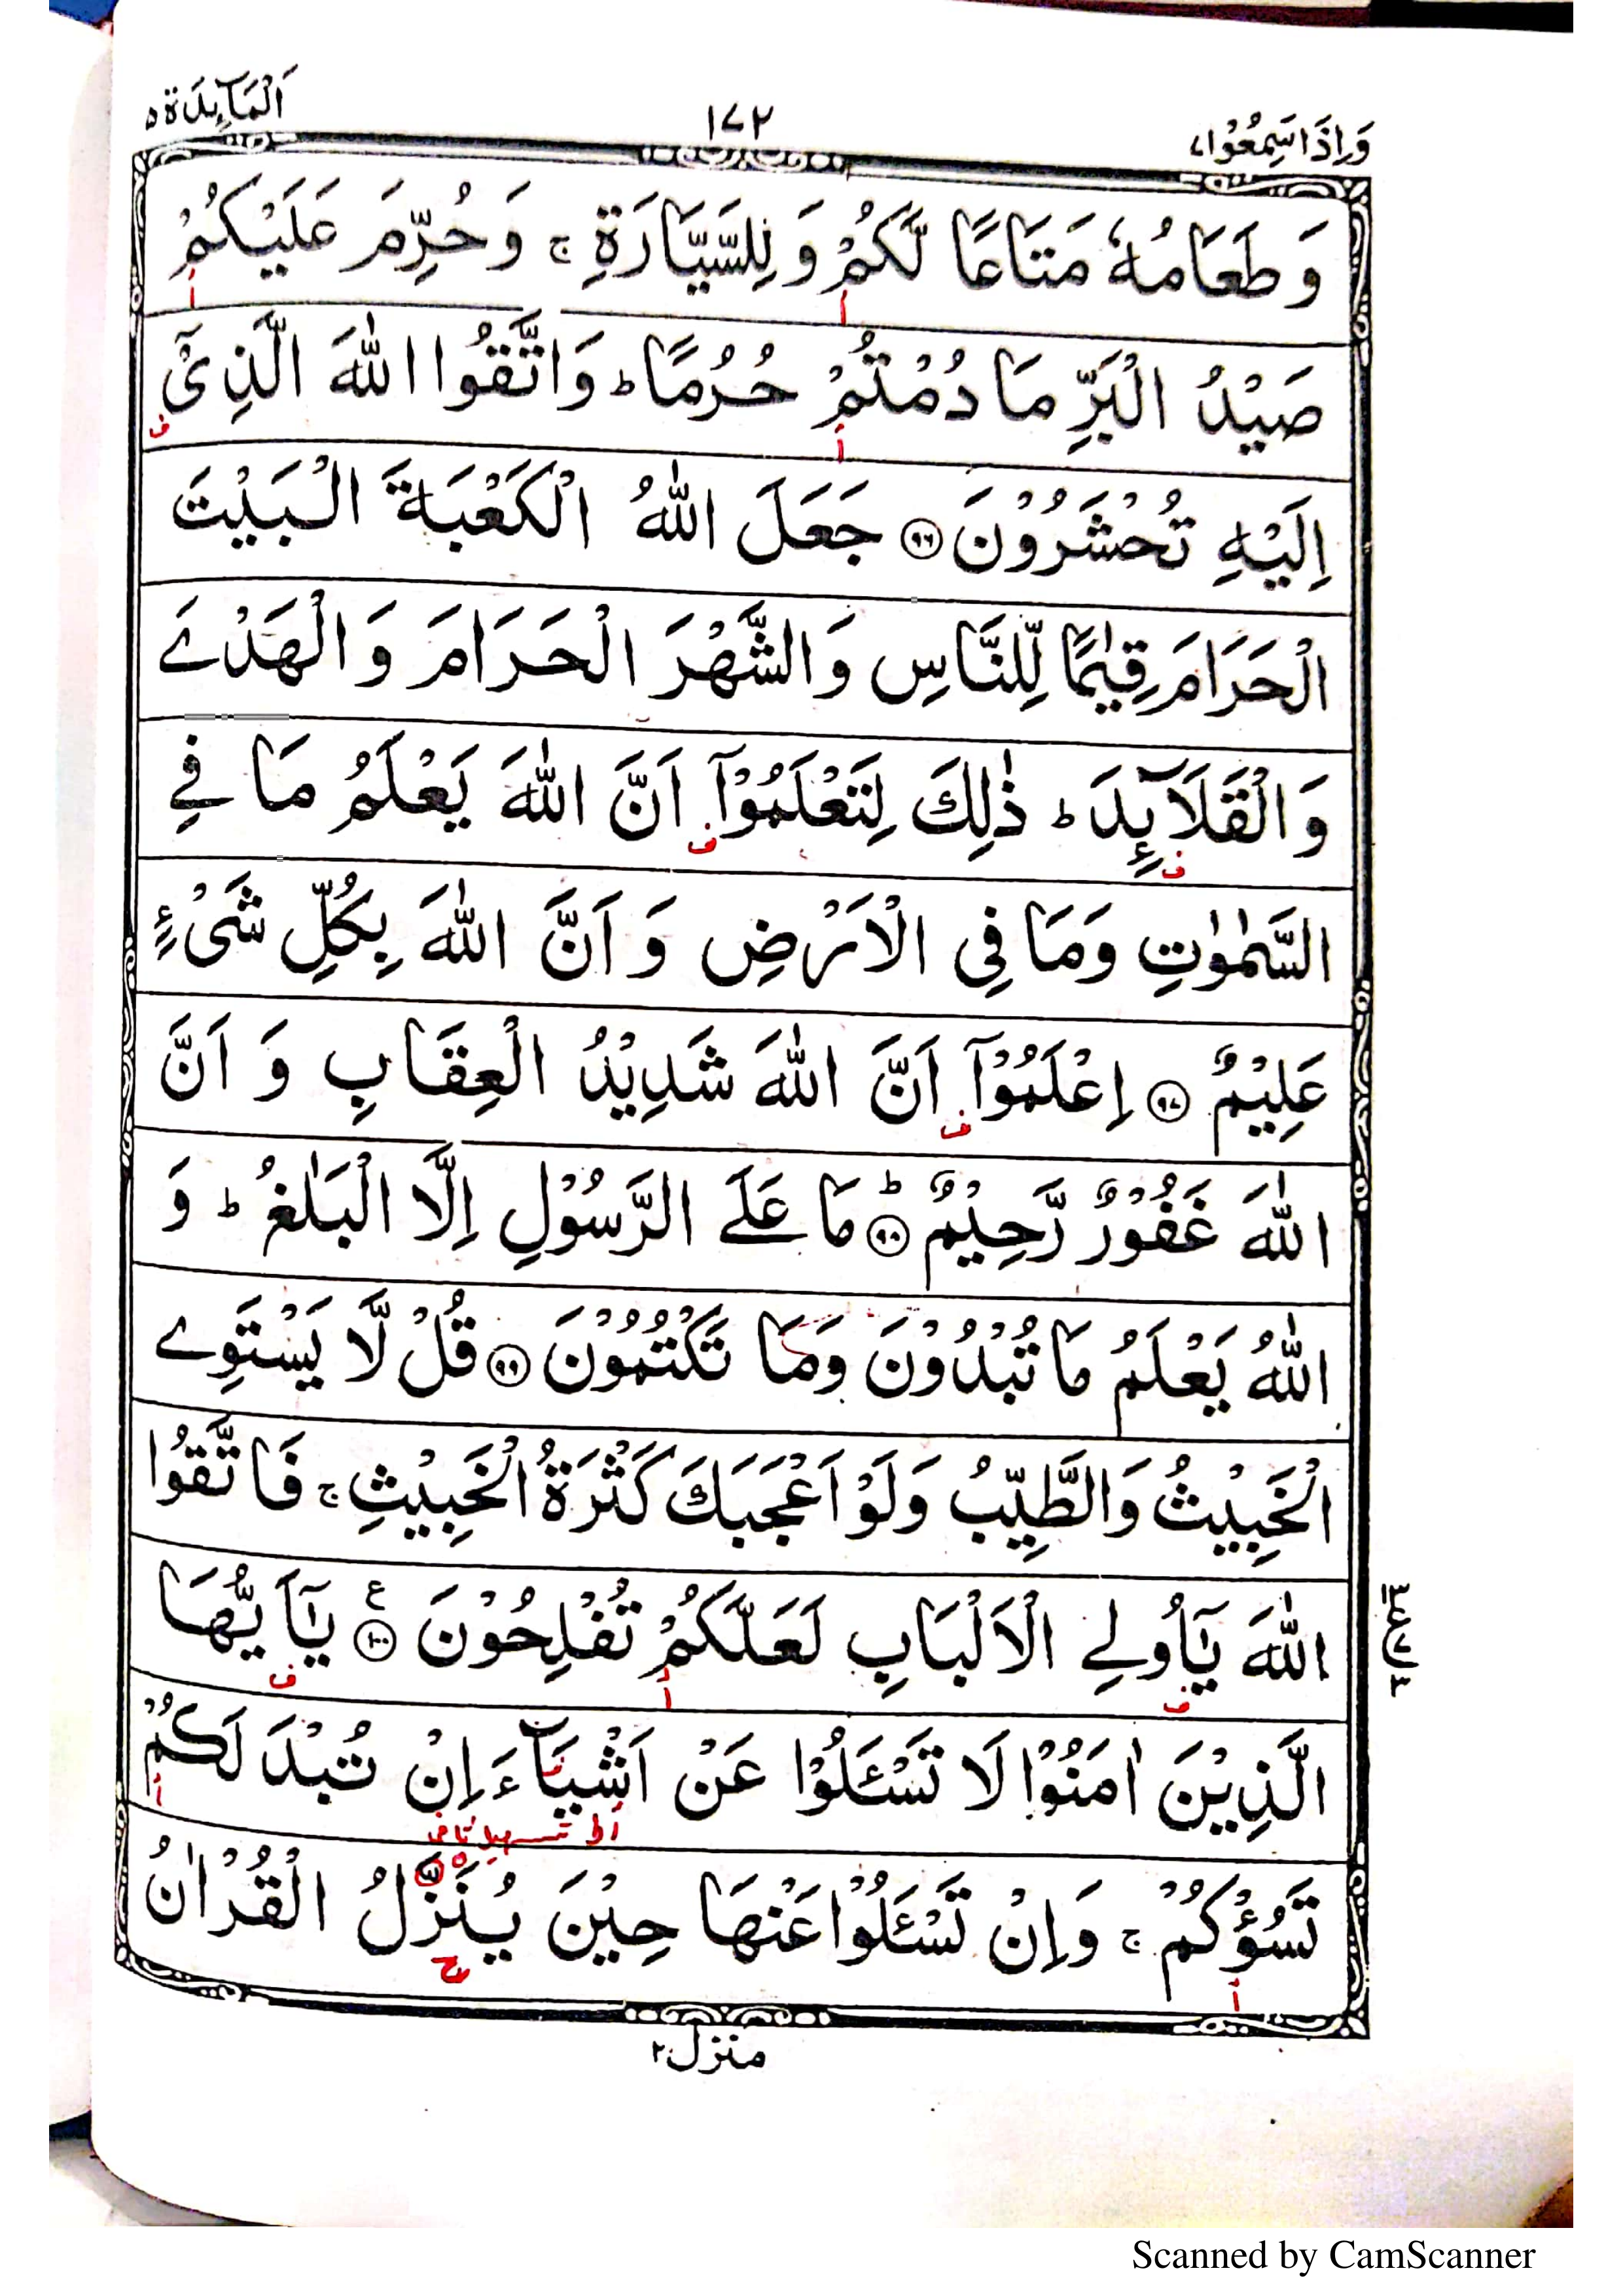 وَاِذَا سَمِعُوْا ٧ ١٧٢ اَلْمَآئِدَة ٥
وَطَعَامُهٗ مَتَاعًا لَّكُمْ وَلِلسَّيَّارَةِ ۚ وَحُرِّمَ عَلَيْكُمْ
أ أ
صَيْدُ الْبَرِّ مَا دُمْتُمْ حُرُمًا ؕ وَاتَّقُوا اللّٰهَ الَّذِىْٓ
أ ف
اِلَيْهِ تُحْشَرُوْنَ ﴿٩٦﴾ جَعَلَ اللّٰهُ الْكَعْبَةَ الْبَيْتَ
الْحَرَامَ قِيٰمًا لِّلنَّاسِ وَالشَّهْرَ الْحَرَامَ وَالْهَدْىَ
وَالْقَلَآئِدَ ؕ ذٰلِكَ لِتَعْلَمُوْٓا اَنَّ اللّٰهَ يَعْلَمُ مَا فِى
ف ف
السَّمٰوٰتِ وَمَا فِى الْاَرْضِ وَاَنَّ اللّٰهَ بِكُلِّ شَىْءٍ
عَلِيْمٌ ﴿٩٧﴾ اِعْلَمُوْٓا اَنَّ اللّٰهَ شَدِيْدُ الْعِقَابِ وَاَنَّ
ف
اللّٰهَ غَفُوْرٌ رَّحِيْمٌ ﴿٩٨﴾ؕ مَا عَلَى الرَّسُوْلِ اِلَّا الْبَلٰغُ ؕ وَ
اللّٰهُ يَعْلَمُ مَا تُبْدُوْنَ وَمَا تَكْتُمُوْنَ ﴿٩٩﴾ قُلْ لَّا يَسْتَوِى
الْخَبِيْثُ وَالطَّيِّبُ وَلَوْ اَعْجَبَكَ كَثْرَةُ الْخَبِيْثِ ۚ فَاتَّقُوا
اللّٰهَ يٰٓاُولِى الْاَلْبَابِ لَعَلَّكُمْ تُفْلِحُوْنَ ﴿١٠٠﴾ ع يٰٓاَيُّهَا
ف أ ف
الَّذِيْنَ اٰمَنُوْا لَا تَسْئَلُوْا عَنْ اَشْيَآءَ اِنْ تُبْدَ لَكُمْ
أ
تَسُؤْكُمْ ۚ وَاِنْ تَسْئَلُوْا عَنْهَا حِيْنَ يُنَزَّلُ الْقُرْاٰنُ
أ ح
منزل ٢
Scanned by CamScanner